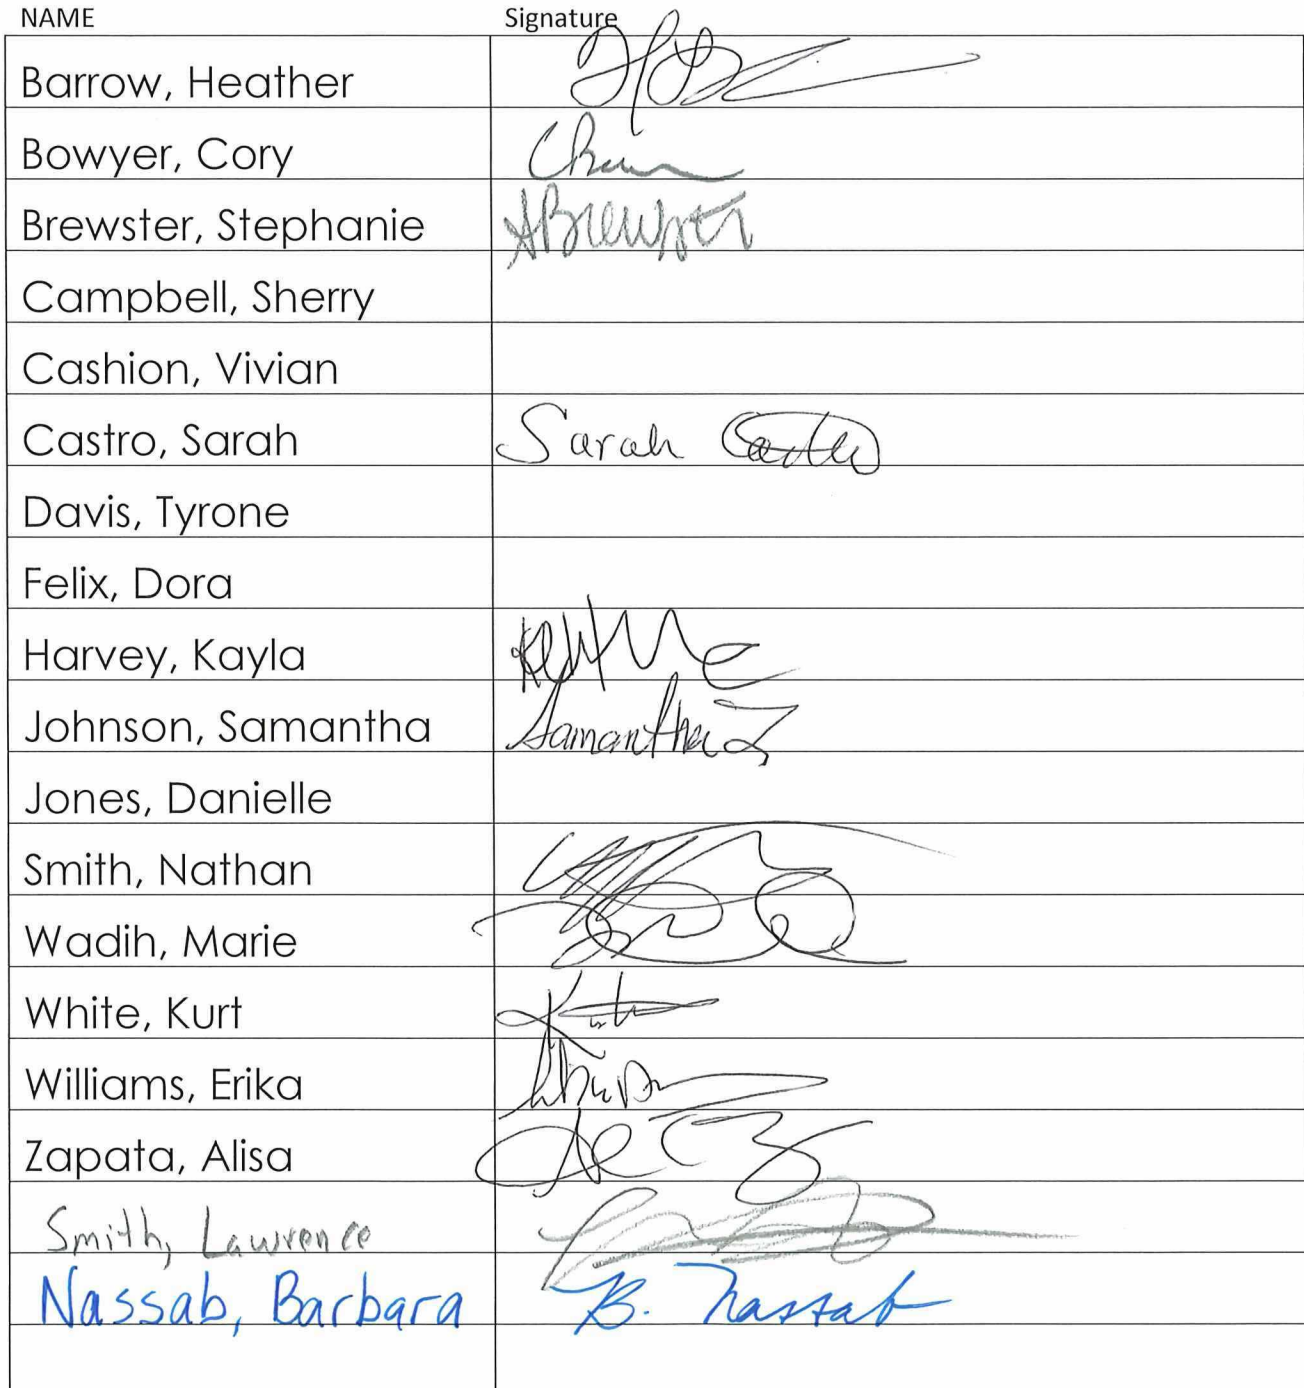 NAME Signature
Barrow, Heather
Bowyer, Cory
Brewster, Stephanie ABrewster
Campbell, Sherry
Cashion, Vivian
Castro, Sarah Sarah Castro
Davis, Tyrone
Felix, Dora
Harvey, Kayla
Johnson, Samantha Samantha J
Jones, Danielle
Smith, Nathan
Wadih, Marie
White, Kurt
Williams, Erika
Zapata, Alisa
Smith, Lawrence
Nassab, Barbara B. Nassab